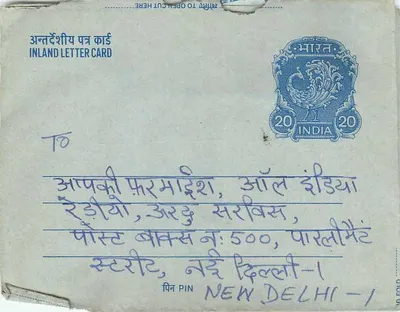 TO OPEN CUT HERE
अन्तर्देशीय पत्र कार्ड
INLAND LETTER CARD
भारत
20 20
INDIA
TO
आपकी फ़रमाईश, ऑल इंडिया
रेडीयो, उरदु सरविस,
पोस्ट बाक्स नः 500, पारलीमैटं
स्टरीट, नई दिल्ली-1
पिन PIN
NEW DELHI-1